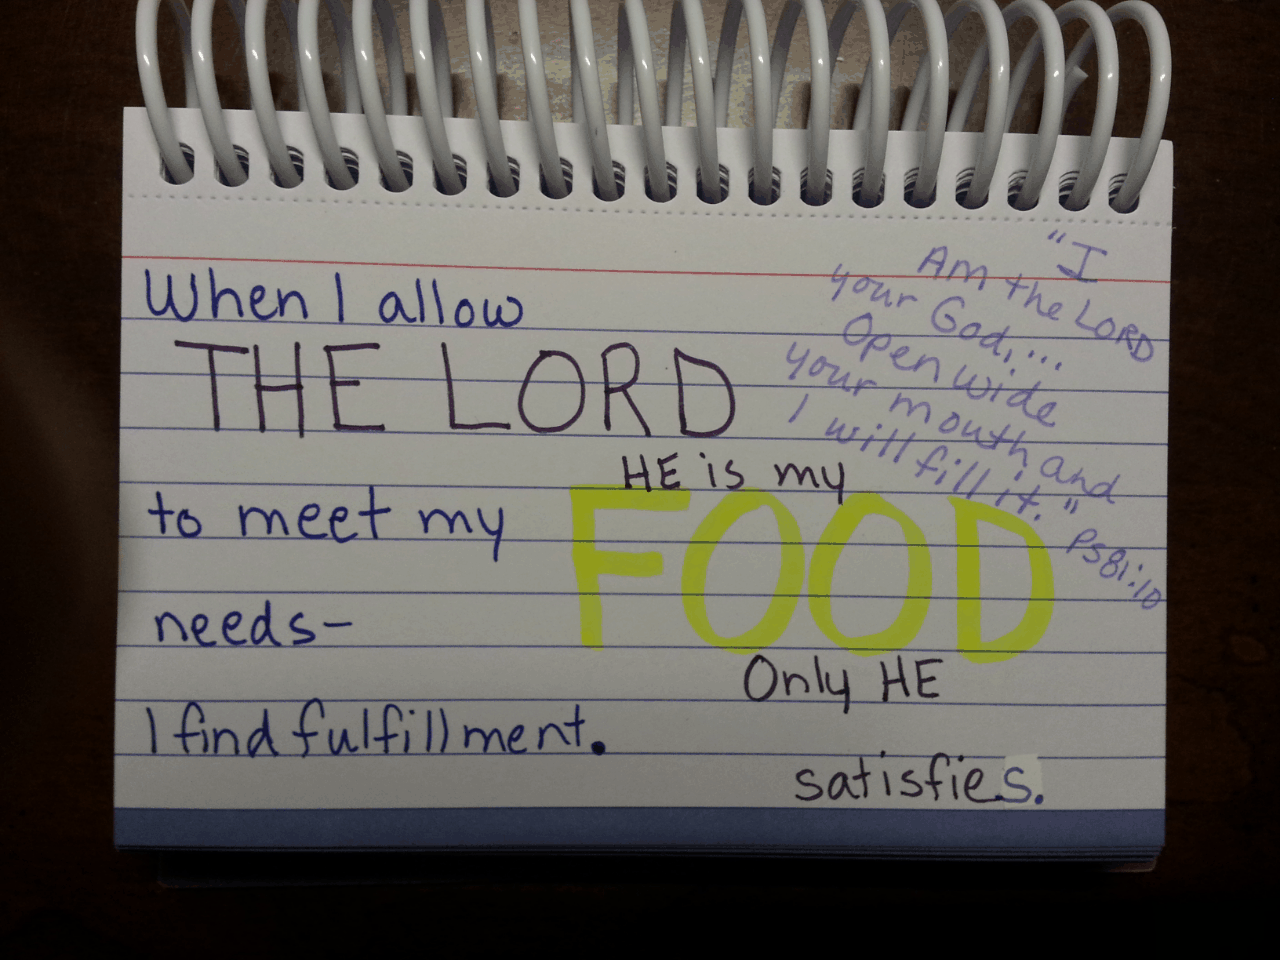 When I allow
THE LORD
to meet my
needs-
I find fulfillment.
"I
Am the LORD
your God,...
Open wide
your mouth and
I will fill it."
PS81:10
HE is my
FOOD
Only HE
satisfies.